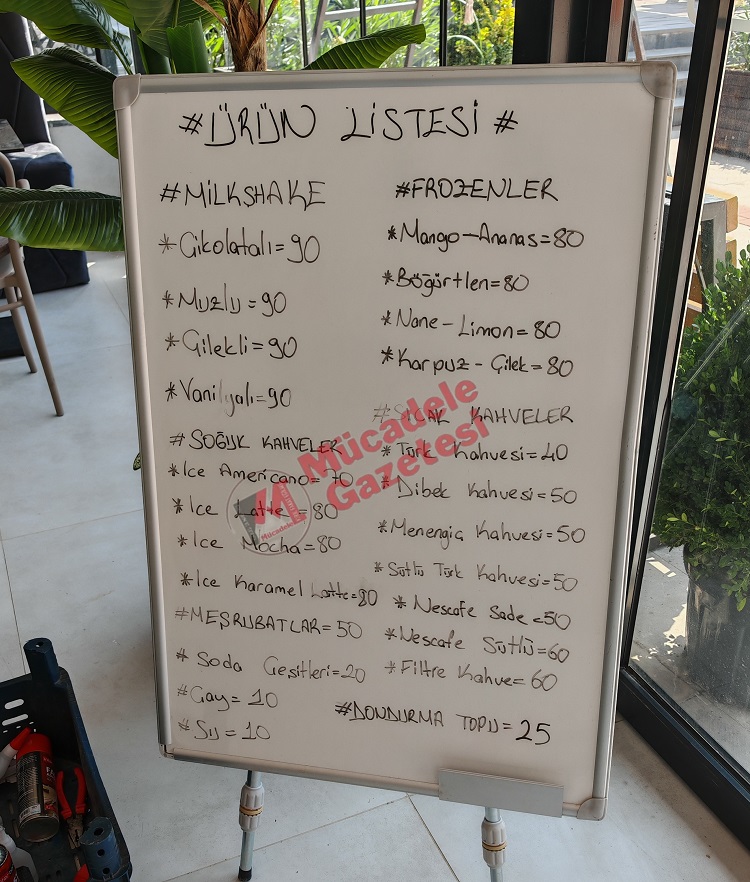 #ÜRÜN LİSTESİ #
#MİLKSHAKE
*Çikolatalı=90
*Muzlu=90
*Çilekli=90
*Vanilyalı=90
#SOĞUK KAHVELER
*Ice Americano=70
*Ice Latte=80
*Ice Mocha=80
*Ice Karamel Latte=80
#MEŞRUBATLAR=50
# Soda Çeşitleri=20
#Çay=10
#Su=10
#FROZENLER
*Mango-Ananas=80
*Böğürtlen=80
*Nane-Limon=80
*Karpuz-Çilek=80
#SICAK KAHVELER
*Türk Kahvesi=40
*Dibek Kahvesi=50
*Menengiç Kahvesi=50
*Sütlü Türk Kahvesi=50
*Nescafe Sade=50
*Nescafe Sütlü=60
*Filtre Kahve=60
#DONDURMA TOPU=25
Mücadele
Gazetesi